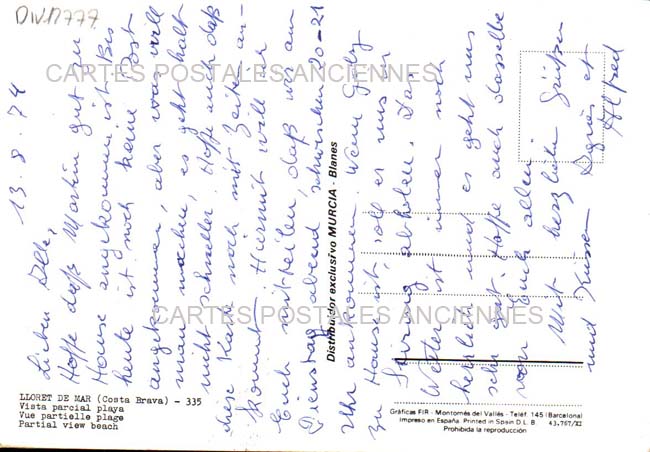 DIV.N777
13.8.74
Lieben Alle,
Hoffe daß Martin gut zu
Hause angekommen ist. Bis
heute ist noch keine Post
angekommen, aber was will
man machen, es geht halt
nicht schneller. Hoffe auch daß
diese Karte noch mit Zeiten an-
kommt. Hiermit will ich
Euch mitteilen, daß wir am
Dienstag abend zwischen 20-21
Uhr ankommen. Wenn
zu Hause ist, soll er uns in
abholen. Das
Wetter ist immer noch
herrlich und es geht uns
sehr gut. Hoffe auch dasselbe
von Euch allen.
Mit herzlichen Grüßen
und Küssen Agnès et
Alfred
CARTES POSTALES ANCIENNES
CARTES POSTALES ANCIENNES
Distribuidor exclusivo MURCIA - Blanes
LLORET DE MAR (Costa Brava) - 335
Vista parcial playa
Vue partielle plage
Partial view beach
Gráficas FIR - Montornés del Vallés - Teléf. 145 (Barcelona)
Impreso en España. Printed in Spain D. L. B 43.767/XI
Prohibida la reproducción